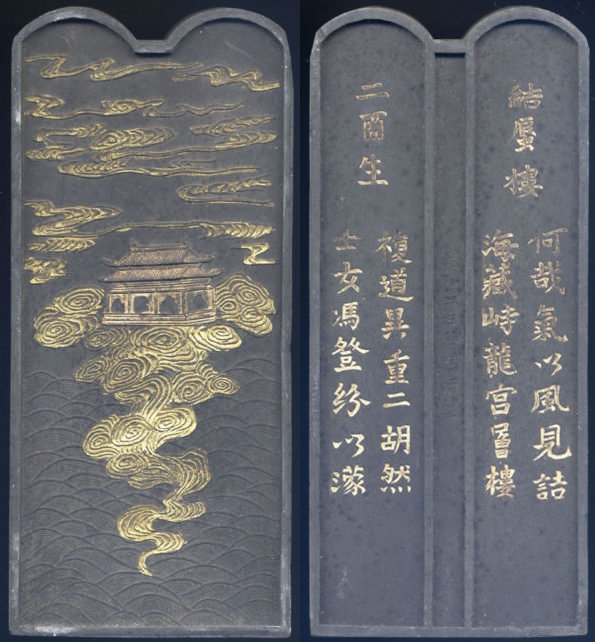 結蜃樓
何哉氣以風見詰
海藏峙龍宮層樓
二酉生
複道異重二胡然
士女馮登紛以濛